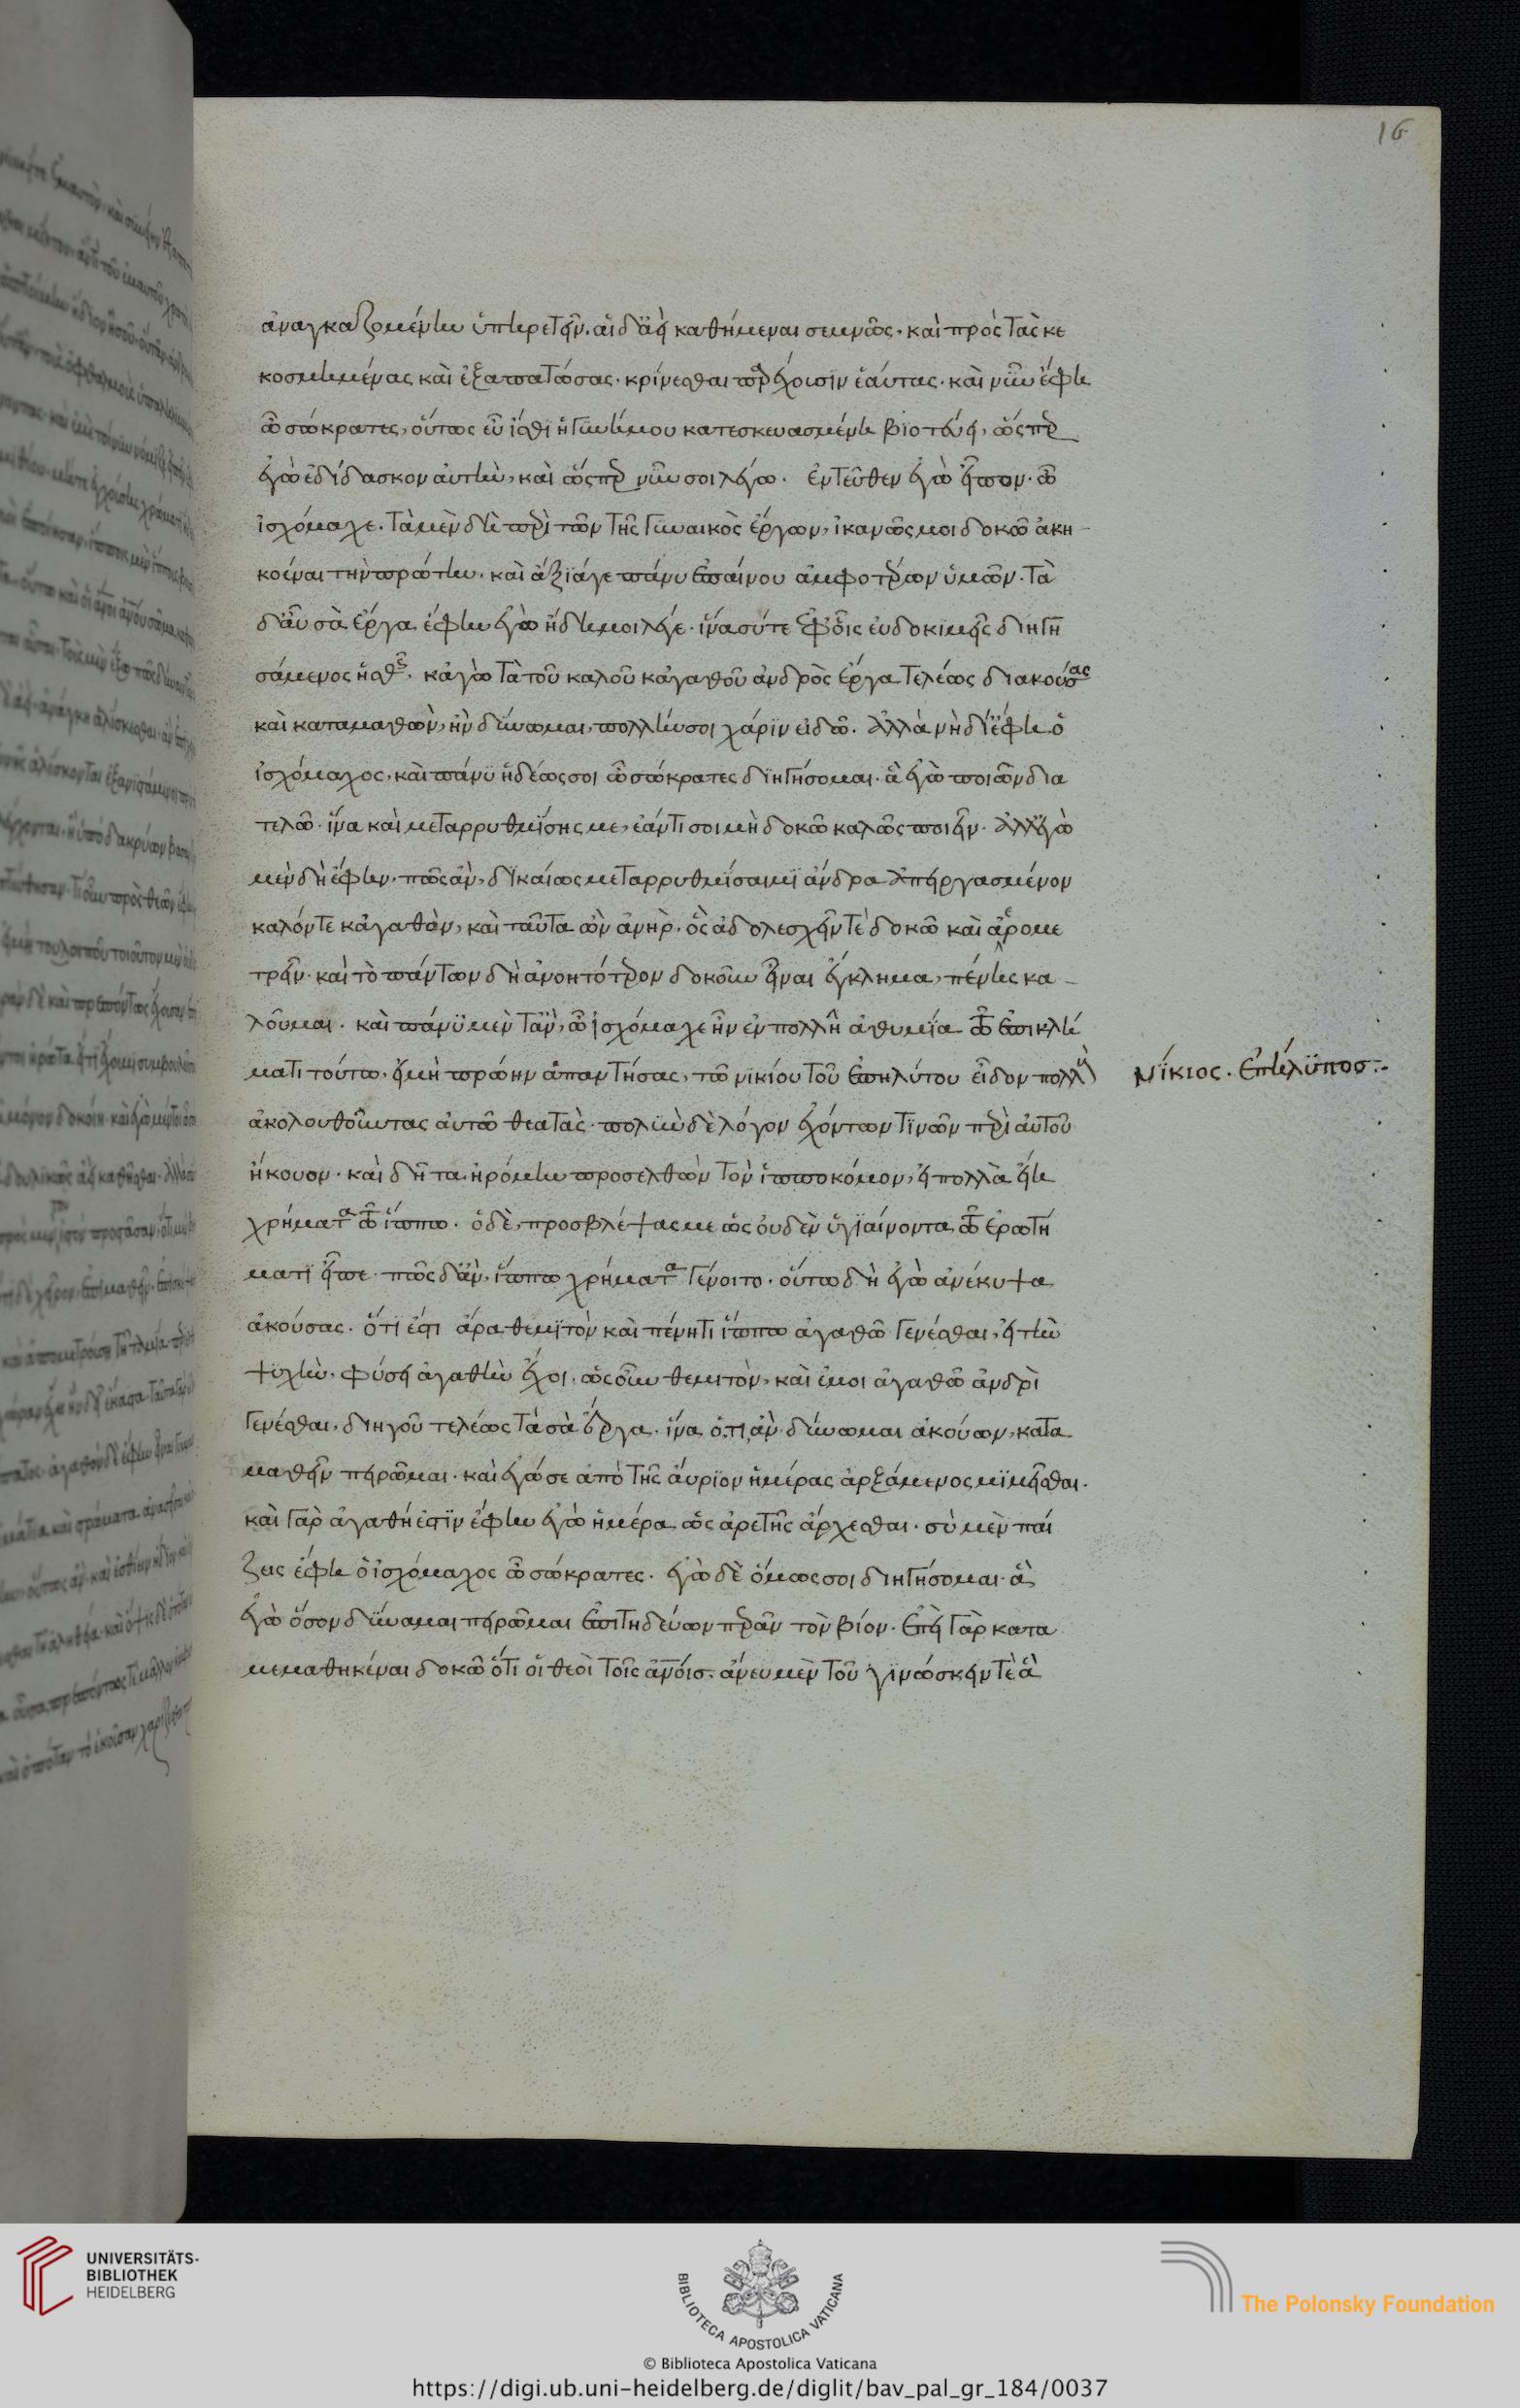 16
ἀναγκαζομένην ὑπηρετεῖν. αἱ δ' ἀεὶ καθήμεναι σεμνῶς, καὶ πρὸς τὰς κε
κοσμημένας καὶ ἐξαπατώσας, κρίνεσθαι παρέχουσιν ἑαυτάς. καὶ νῦν ἔφη
ὦ σώκρατες, οὕτως εὖ ἴσθι ἡ γυνή μου κατεσκευασμένη βιοτεύει, ὥσπερ
ἐγὼ ἐδίδασκον αὐτὴν, καὶ ὥσπερ νῦν σοι λέγω. ἐντεῦθεν ἐγὼ εἶπον. ὦ
ἰσχόμαχε. τὰ μὲν δὴ περὶ τῶν τῆς γυναικὸς ἔργων, ἱκανῶς μοι δοκῶ ἀκη
κοέναι τὴν πρώτην. καὶ ἄξιά γε πάνυ ἐπαίνου ἀμφοτέρων ὑμῶν. τὰ
δ' αὖ σὰ ἔργα ἔφην ἐγὼ ἤδη μοι λέγε. ἵνα σύ τε ἐφ' οἷς εὐδοκιμεῖς διηγη
σάμενος ἡσθῇς, κἀγὼ τὰ τοῦ καλοῦ κἀγαθοῦ ἀνδρὸς ἔργα τελέως διακούσας
καὶ καταμαθὼν, ἢν δύνωμαι, πολλήν σοι χάριν εἰδῶ. ἀλλὰ νὴ δί' ἔφη ὁ
ἰσχόμαχος, καὶ πάνυ ἡδέως σοι ὦ σώκρατες διηγήσομαι. ἃ ἐγὼ ποιῶν δια
τελῶ. ἵνα καὶ μεταρρυθμίσῃς με, ἐάν τι σοι μὴ δοκῶ καλῶς ποιεῖν. ἀλλ' ἐγὼ
μὲν δὴ ἔφην. πῶς ἂν, δικαίως μεταρρυθμίσαιμι ἄνδρα ἀπειργασμένον
καλόν τε κἀγαθὸν, καὶ ταῦτα ὢν ἀνὴρ. ὃς ἀδολεσχεῖν τέ δοκῶ καὶ ἀερομε
τρεῖν. καὶ τὸ πάντων δὴ ἀνοητότερον δοκοῦν εἶναι ἔγκλημα, πένης κα
λοῦμαι. καὶ πάνυ μὲν τἂν, ὦ ἰσχόμαχε ἦν ἐν πολλῇ ἀθυμία τῶ ἐπικλή
ματι τούτω, εἰ μὴ πρώην ἀπαντήσας, τῶ νικίου τοῦ ἐπηλύτου εἶδον πολλοὺς
ἀκολουθοῦντας αὐτῶ θεατὰς. πολὺν δὲ λόγον ἐχόντων τινῶν περὶ αὐτοῦ
ἤκουον. καὶ δῆτα ἠρόμην προσελθὼν τὸν ἱπποκόμον, εἰ πολλὰ εἴη
χρήματα τῶ ἵππω. ὁ δὲ, προσβλέψας με ὡς οὐδὲν ὑγιαίνοντα τῶ ἐρωτή
ματι εἶπε. πῶς δ' ἂν, ἵππω χρήματα γένοιτο. οὕτω δὴ ἐγὼ ἀνέκυψα
ἀκούσας. ὅτι ἐστι ἄρα θεμιτὸν καὶ πένητι ἵππω ἀγαθῶ γενέσθαι, εἰ τὴν
ψυχὴν, φύσει ἀγαθὴν ἔχοι. ὡς οὖν θεμιτὸν, καὶ ἐμοι ἀγαθῶ ἀνδρὶ
γενέσθαι, διηγοῦ τελέως τὰ σὰ ἔργα. ἵνα ὅ,τι ἂν δύνωμαι ἀκούων, κατα
μαθεῖν πειρῶμαι. καὶ ἐγώ σε ἀπὸ τῆς αὔριον ἡμέρας ἀρξάμενος μιμεῖσθαι.
καὶ γὰρ ἀγαθή ἐστιν ἔφην ἐγὼ ἡμέρα ὡς ἀρετῆς ἄρχεσθαι. σὺ μὲν παί
ζεις ἔφη ὁ ἰσχόμαχος ὦ σώκρατες. ἐγὼ δὲ ὅμως σοι διηγήσομαι. ἃ
ἐγὼ ὅσον δύναμαι πειρῶμαι ἐπιτηδεύων περᾶν τὸν βίον. ἐπεὶ γὰρ κατα
μεμαθηκέναι δοκῶ ὅτι οἱ θεοὶ τοῖς ἀνοις. ἄνευ μὲν τοῦ γινώσκειν τὲ ἃ
νίκιος. ἐπήλυπος
UNIVERSITÄTS-
BIBLIOTHEK
HEIDELBERG
BIBLIOTECA APOSTOLICA VATICANA
The Polonsky Foundation
© Biblioteca Apostolica Vaticana
https://digi.ub.uni-heidelberg.de/diglit/bav_pal_gr_184/0037